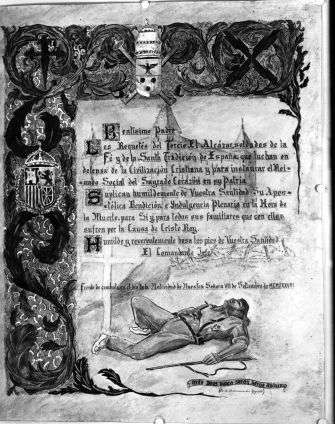 Beatísimo Padre
Los Requetés del Tercio El Alcázar, soldados de la
Fé y de la Santa Tradición de España, que luchan en
defensa de la Civilización Cristiana y para instaurar el Rei-
nado Social del Sagrado Corazón en su Patria
Suplican humildemente de Vuestra Santidad Su Apos-
tólica Bendición e Indulgencia Plenaria en la Hora de
la Muerte, para Si y para todos sus familiares que con ellos
sufren por la Causa de Cristo Rey.
Humilde y reverentemente besa los pies de Vuestra Santidad
El Comandante Jefe
Frente de día de la Natividad de Nuestra Señora VIII de Setiembre de
ANTE DIOS NUNCA SERÁS HÉROE ANÓNIMO